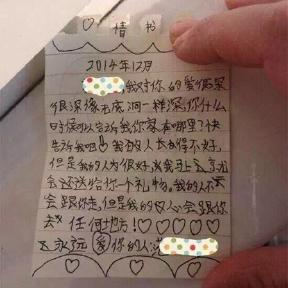 ♡情书
2014年12月
我对你的爱很深
很深像无底洞一样深,你什么
时候可以告诉我你家在哪里?快
告诉我吧!我的人长的得不好,
但是我的人为很好,
会还送给你一个礼物。我的人不
会跟你走,但是我的心会跟你
去任何地方!♡♡♡♡♡
永远爱你的人: